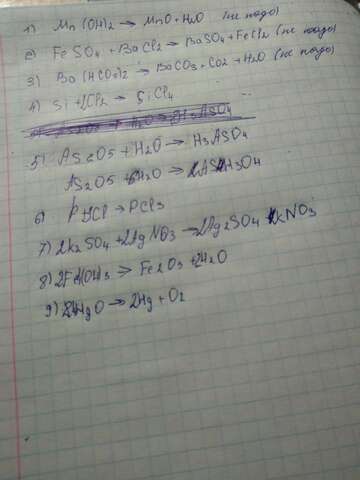 1) Mn(OH)2 → MnO + H2O (не надо)
2) FeSO4 + BaCl2 → BaSO4 + FeCl2 (не надо)
3) Ba(HCO3)2 → BaCO3 + CO2 + H2O (не надо)
4) Si + 2Cl2 → SiCl4
5) As2O5 + H2O → H3AsO4
As2O5 + H2O → 2H3O4
6) P + Cl → PCl3
7) 2K2SO4 + 2AgNO3 → 2Ag2SO4 KNO3
8) 2Fe(OH)3 → Fe2O3 + H2O
9) HgO → 2Hg + O2